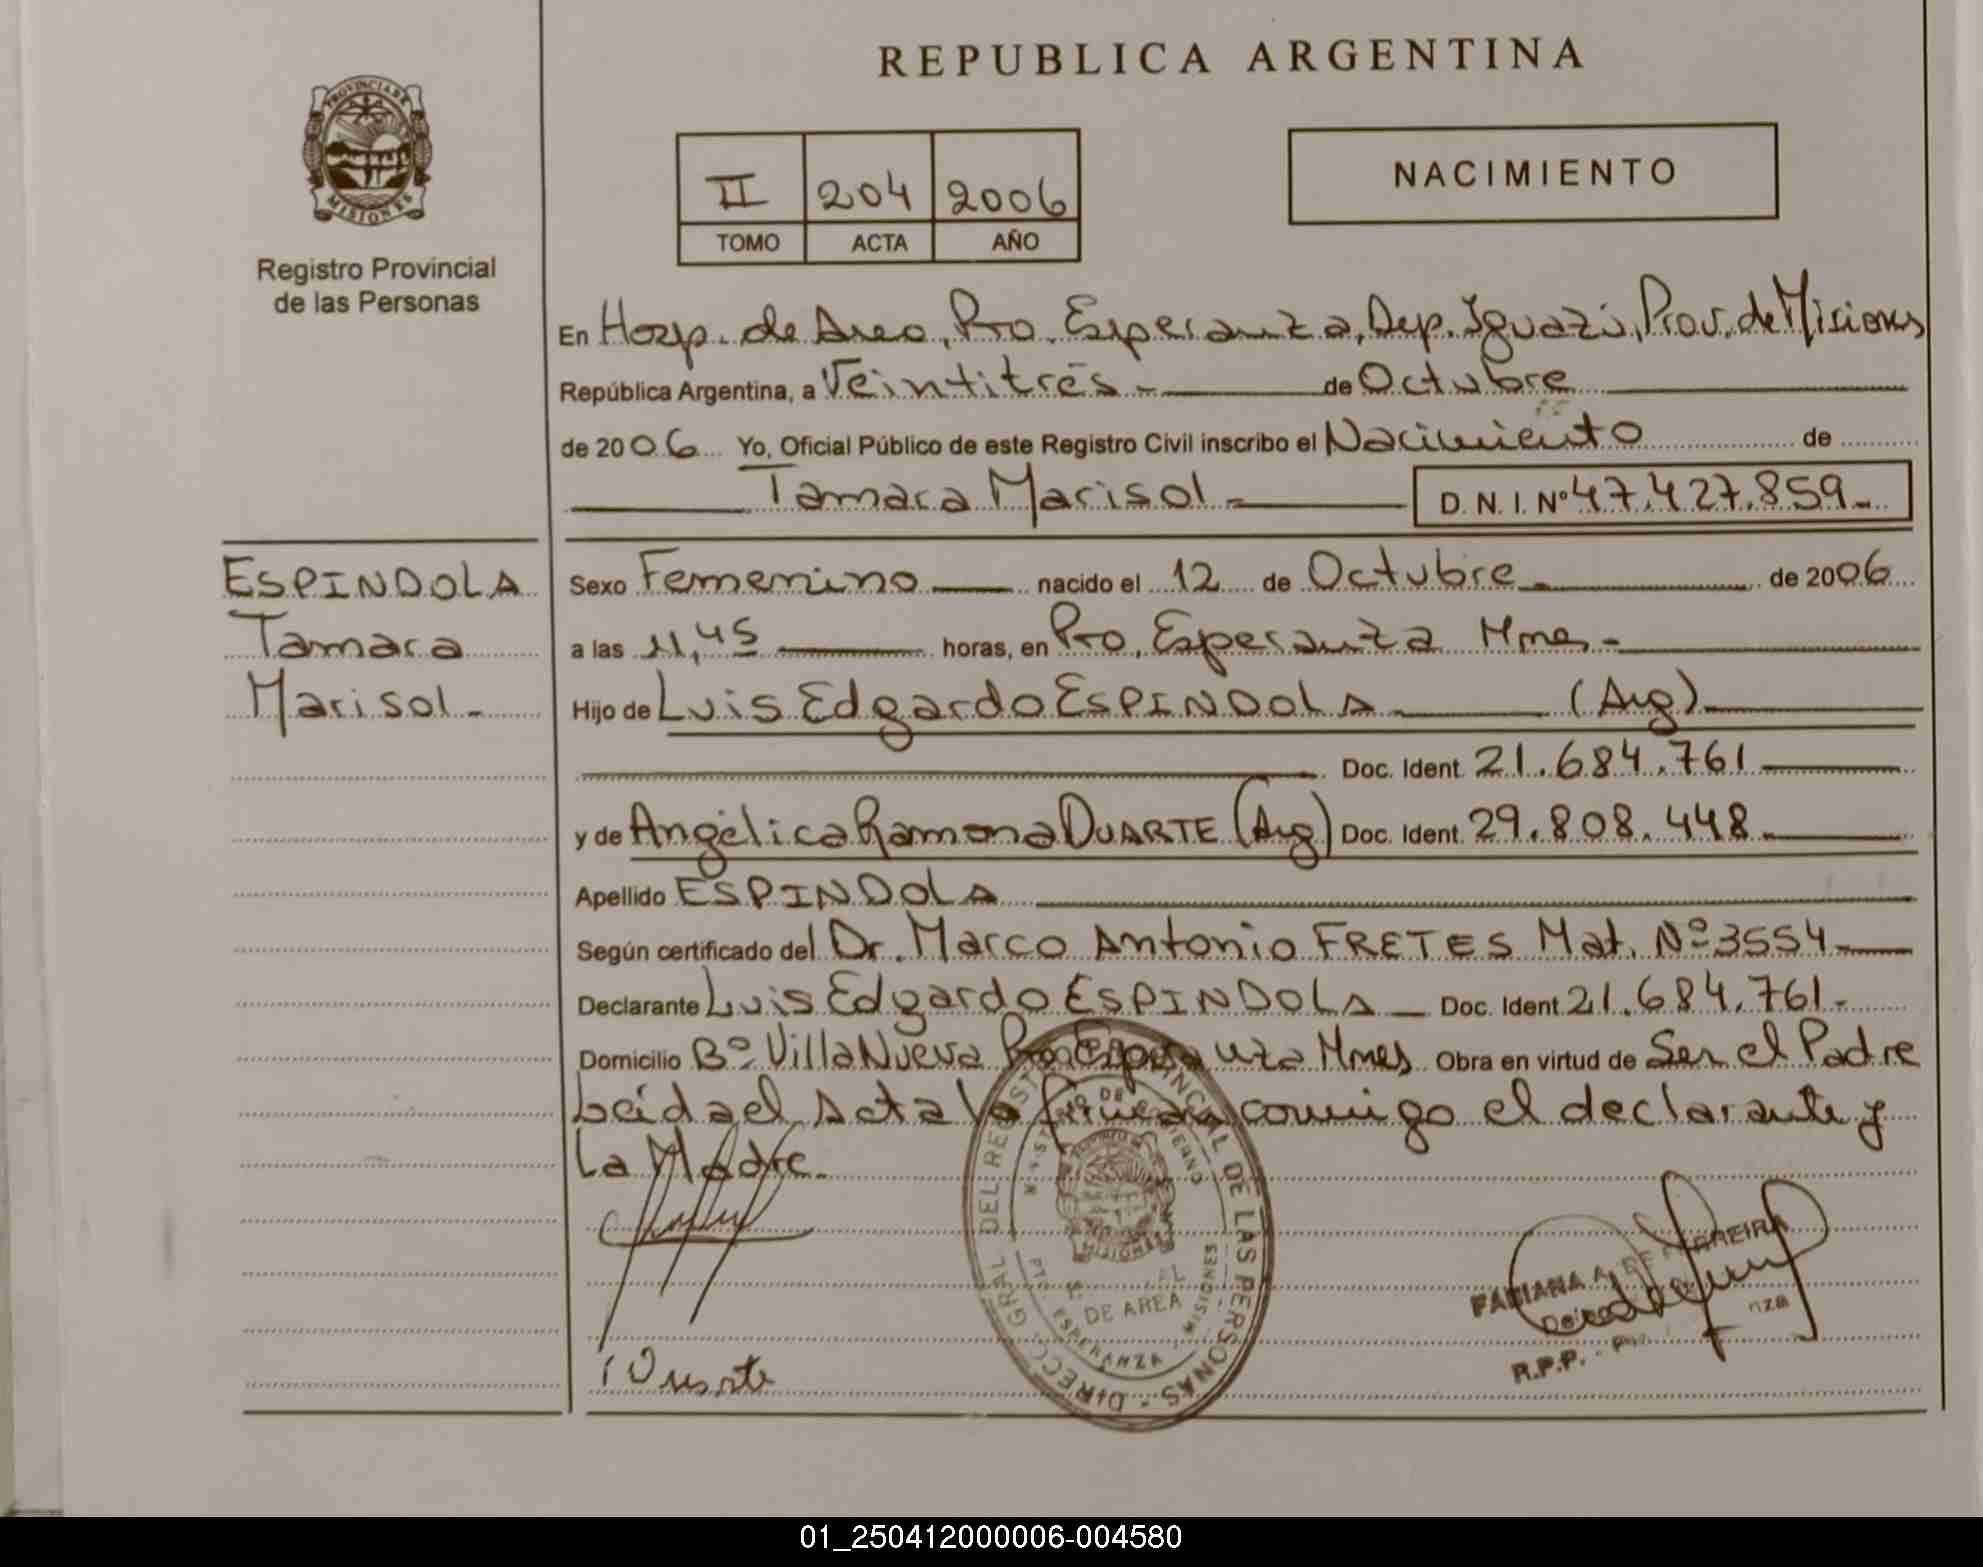 REPUBLICA ARGENTINA
PROVINCIA DE
MISIONES
Registro Provincial
de las Personas
II 204 2006
TOMO ACTA AÑO
NACIMIENTO
En Hosp. de Area, Pto. Esperanza, Dep. Iguazú, Prov. de Misiones
República Argentina, a Veintitrés - de Octubre
de 2006 Yo, Oficial Público de este Registro Civil inscribo el Nacimiento de
Tamara Marisol - D. N. I. Nº 47.427.859-
ESPINDOLA
Tamara
Marisol -
Sexo Femenino nacido el 12 de Octubre - de 2006
a las 11,45 horas, en Pto. Esperanza Mnes -
Hijo de Luis Edgardo ESPINDOLA (Arg)
Doc. Ident. 21.684.761
y de Angélica Ramona DUARTE (Arg) Doc. Ident. 29.808.448
Apellido ESPINDOLA
Según certificado del Dr. Marco Antonio FRETES Mat. Nº 3554
Declarante Luis Edgardo ESPINDOLA Doc. Ident. 21.684.761-
Domicilio Bº Villa Nueva Pto Esperanza Mnes Obra en virtud de Ser el Padre
Leída el Acta la firman conmigo el declarante y
La Madre.
DIRECC. GRAL. DEL REGISTRO PROVINCIAL DE LAS PERSONAS
MINISTERIO DE GOBIERNO
MISIONES
DE AREA
ESPERANZA MISIONES
FABIANA A. DE FERREIRA
R.P.P.
Duarte
01_250412000006-004580